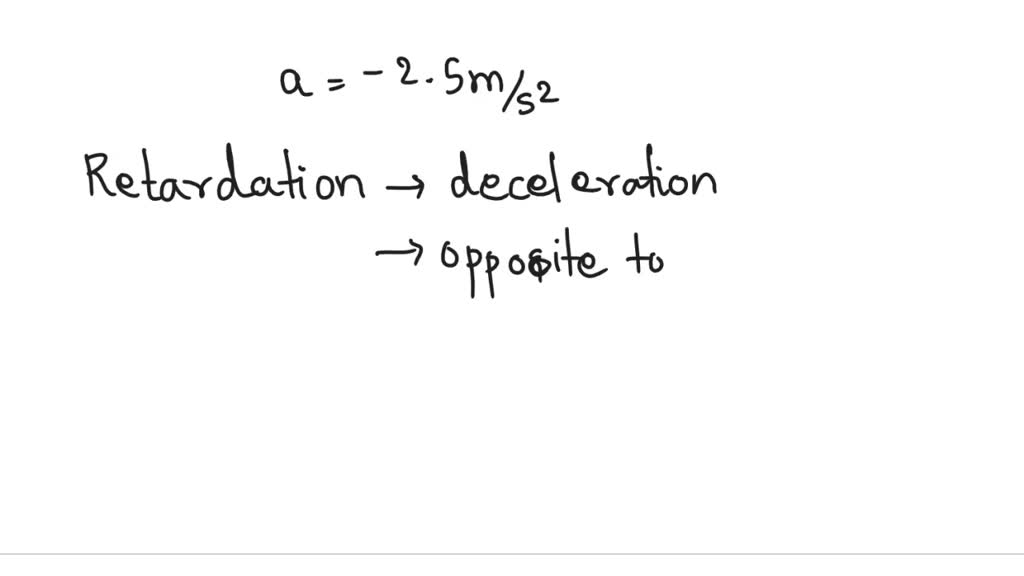 a = -2.5m/s2
Retardation → deceleration
→ opposite to